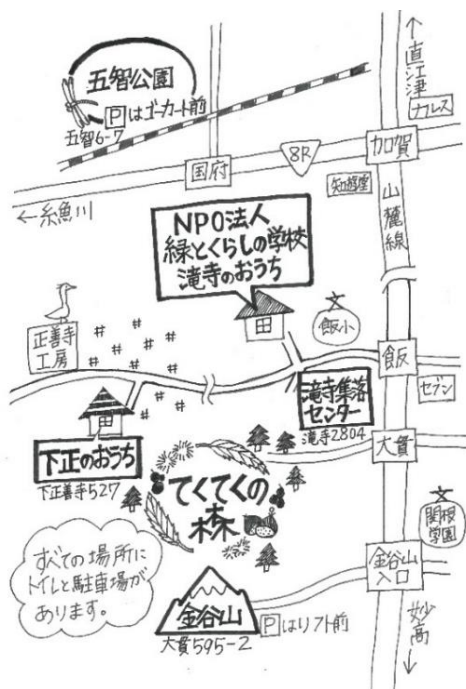 五智公園
Pはゴーカート前
五智6-7
↑直江津
カルス
加賀
8R
国府
知遊堂
山麓線
←糸魚川
NPO法人
緑とくらしの学校
滝寺のおうち
正善寺
工房
飯小
飯
セブン
滝寺集落
センター
滝寺2804
大貫
下正のおうち
下正善寺527
てくてくの
森
関根
学園
すべての場所に
トイレと駐車場が
あります。
金谷山
入口
金谷山
Pはリフト前
大貫595-2
妙高↓